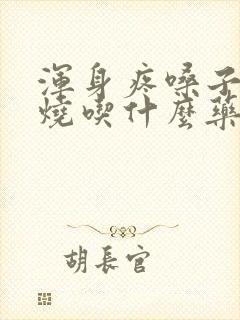 渾身疼嗓子
燒喫什麼藥
胡長官